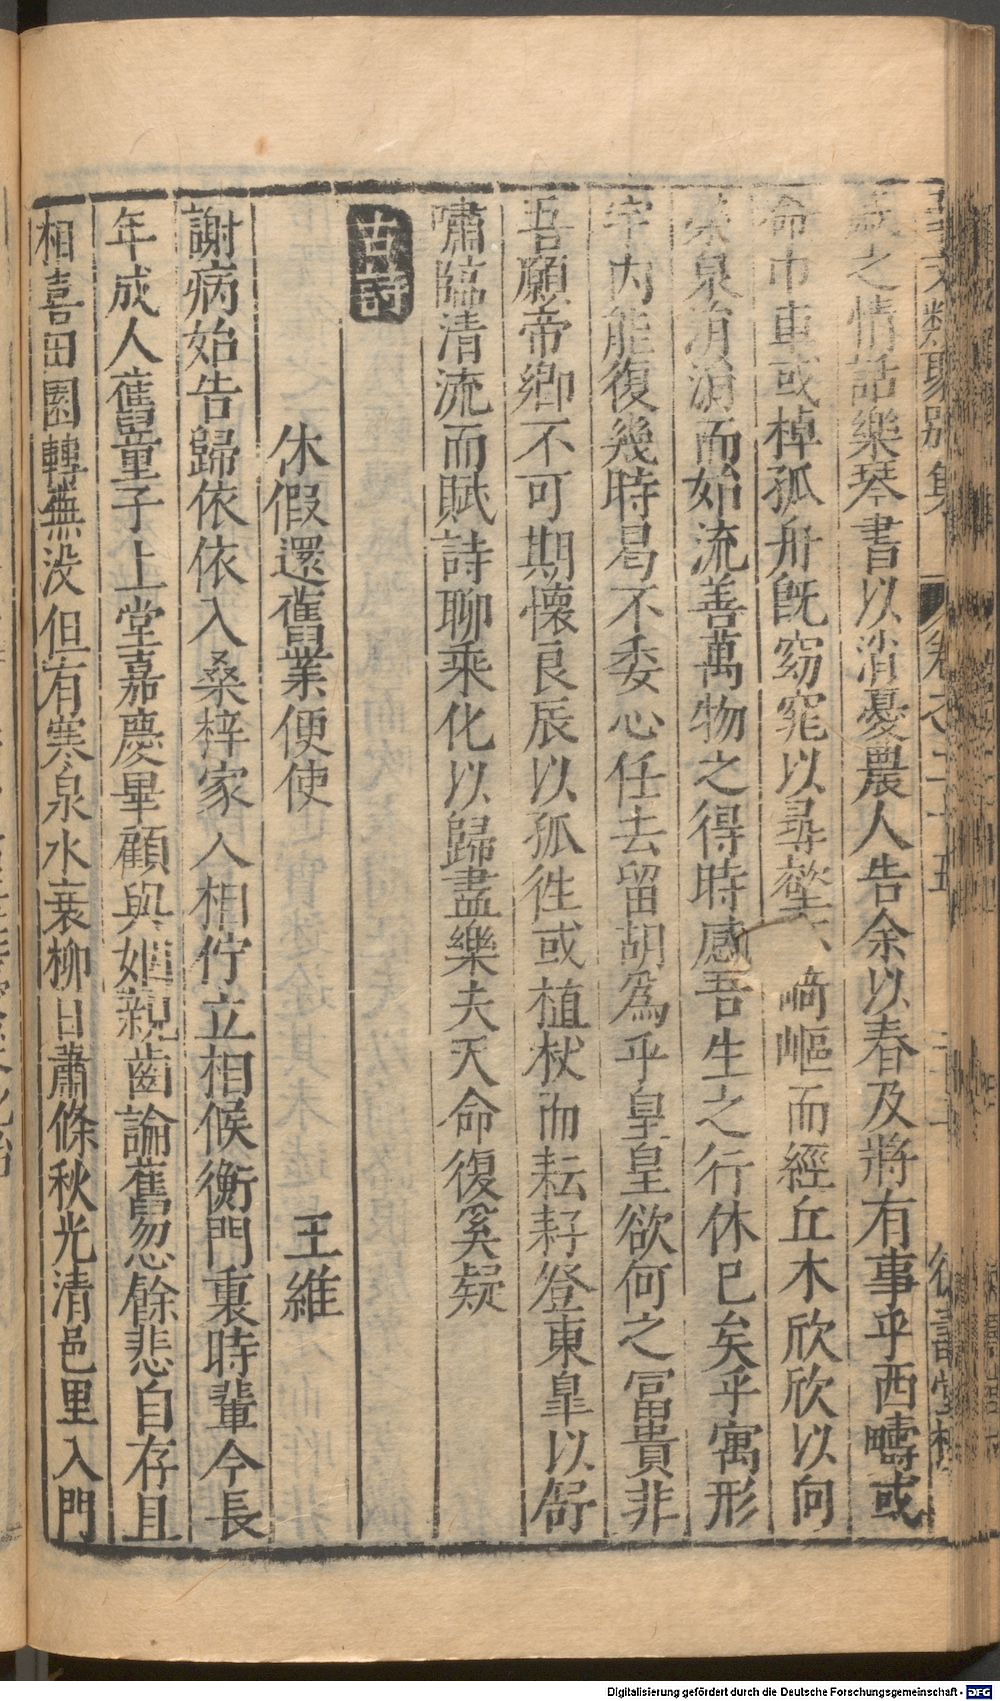 事文類聚別集 卷之二十五
戚之情話樂琴書以消憂農人告余以春及將有事乎西疇或
命巾車或棹孤舟旣窈窕以尋壑亦﨑嶇而經丘木欣欣以向
榮泉涓涓而始流善萬物之得時感吾生之行休已矣乎寓形
宇內能復幾時曷不委心任去留胡爲乎皇皇欲何之冨貴非
吾願帝卿不可期懷良辰以孤徃或植杖而耘耔登東皐以舒
嘯臨清流而賦詩聊乘化以歸盡樂夫天命復奚疑
古詩
休假還舊業便使 王維
謝病始告歸依依入桑梓家人相佇立相候衡門裏時輩今長
年成人舊童子上堂嘉慶畢顧與姻親齒論舊忽餘悲自存且
相喜田園轉蕪没但有寒泉水衰柳日蕭條秋光清邑里入門
Digitalisierung gefördert durch die Deutsche Forschungsgemeinschaft - DFG